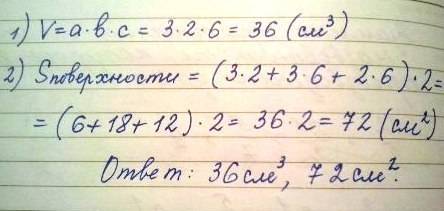 1) V=a·b·c = 3·2·6 = 36 (см³)
2) Sповерхности = (3·2+3·6+2·6)·2=
=(6+18+12)·2= 36·2= 72 (см²)
Ответ: 36см³, 72см².